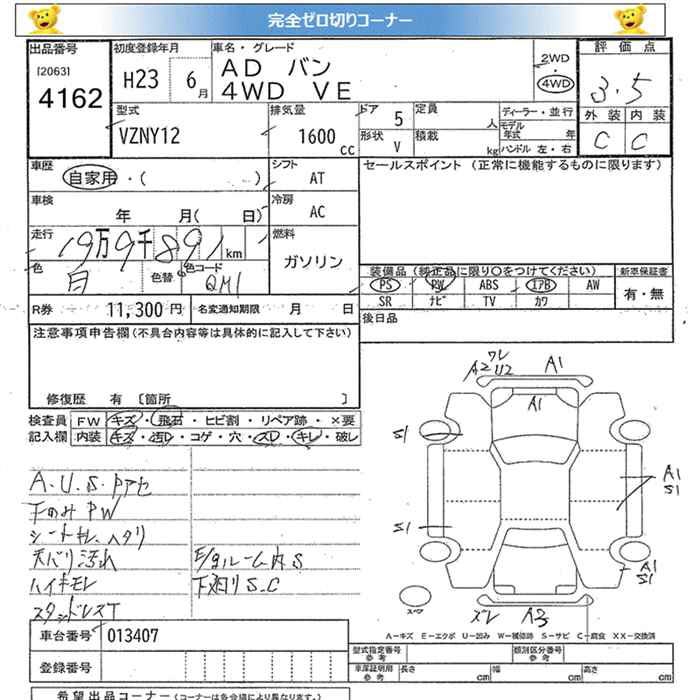 完全ゼロ切りコーナー
出品番号
[2063]
4162
初度登録年月
H23 6月
車名・グレード
AD バン
4WD VE
2WD
4WD
評価点
3.5
外装 内装
C C
型式
VZNY12
排気量
1600
cc
ドア
5
定員
人
形状
V
積載
kg
ディーラー・並行
モデル年式 年
ハンドル 左・右
車歴
自家用・( )
シフト
AT
セールスポイント (正常に機能するものに限ります)
車検
年 月( 日)
冷房
AC
走行
19万9千891km
燃料
ガソリン
色
白
色替
色コード
QM1
装備品(純正品に限り〇をつけてください)
新車保証書
PS PW ABS エアB AW
SR ナビ TV カワ
有・無
R券 11,300 円
名変通知期限 月 日
後日品
注意事項申告欄(不具合内容等は具体的に記入して下さい)
修復歴 有 [箇所 ]
検査員
記入欄
FW キズ・飛石・ヒビ割・リペア跡・×要
内装 キズ・汚レ・コゲ・穴・スレ・キレ・破レ
A.U.S.Pアセ
下のみPW
シートキレ、ヘタリ
天バリ汚れ
ハイキモレ
スタッドレスT
E/gルーム内S
下廻りS.C
ワレ
A2 U2
A1
A1
S1
S1
A1
S1
A1
S1
ズレ A3
スワ
A-キズ E-エクボ U-凹み W-補修跡 S-サビ C-腐食 XX-交換済
車台番号
013407
登録番号
型式指定番号
参考
類別区分番号
参考
車庫証明用
参考
長さ cm
幅 cm
高さ cm
希望出品コーナー(コーナーは各会場により異なります。)